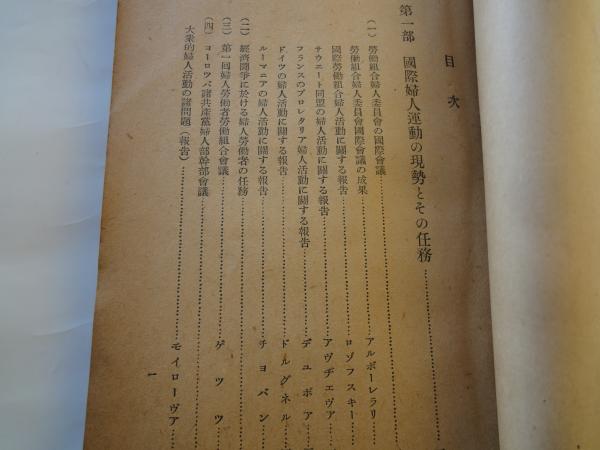 目次
第一部 國際婦人運動の現勢とその任務
(一) 勞働組合婦人委員會の國際會議
勞働組合婦人委員會國際會議の成果 アルボーレラリ
國際勞働組合婦人活動に關する報告 ロゾフスキー
サウエート同盟の婦人活動に關する報告 アヴヂェヴァ
フランスのプロレタリア婦人活動に關する報告 デュボア
ドイツの婦人活動に關する報告 ドルグネル
ルーマニアの婦人活動に關する報告 チョバン
(二) 經濟鬪爭に於ける婦人勞働者の任務
(三) 第一回婦人勞働者勞働組合會議 ゲッツ
(四) ヨーロッパ諸共產黨婦人部幹部會議
大衆的婦人活動の諸問題(報告) モイローヴア
一